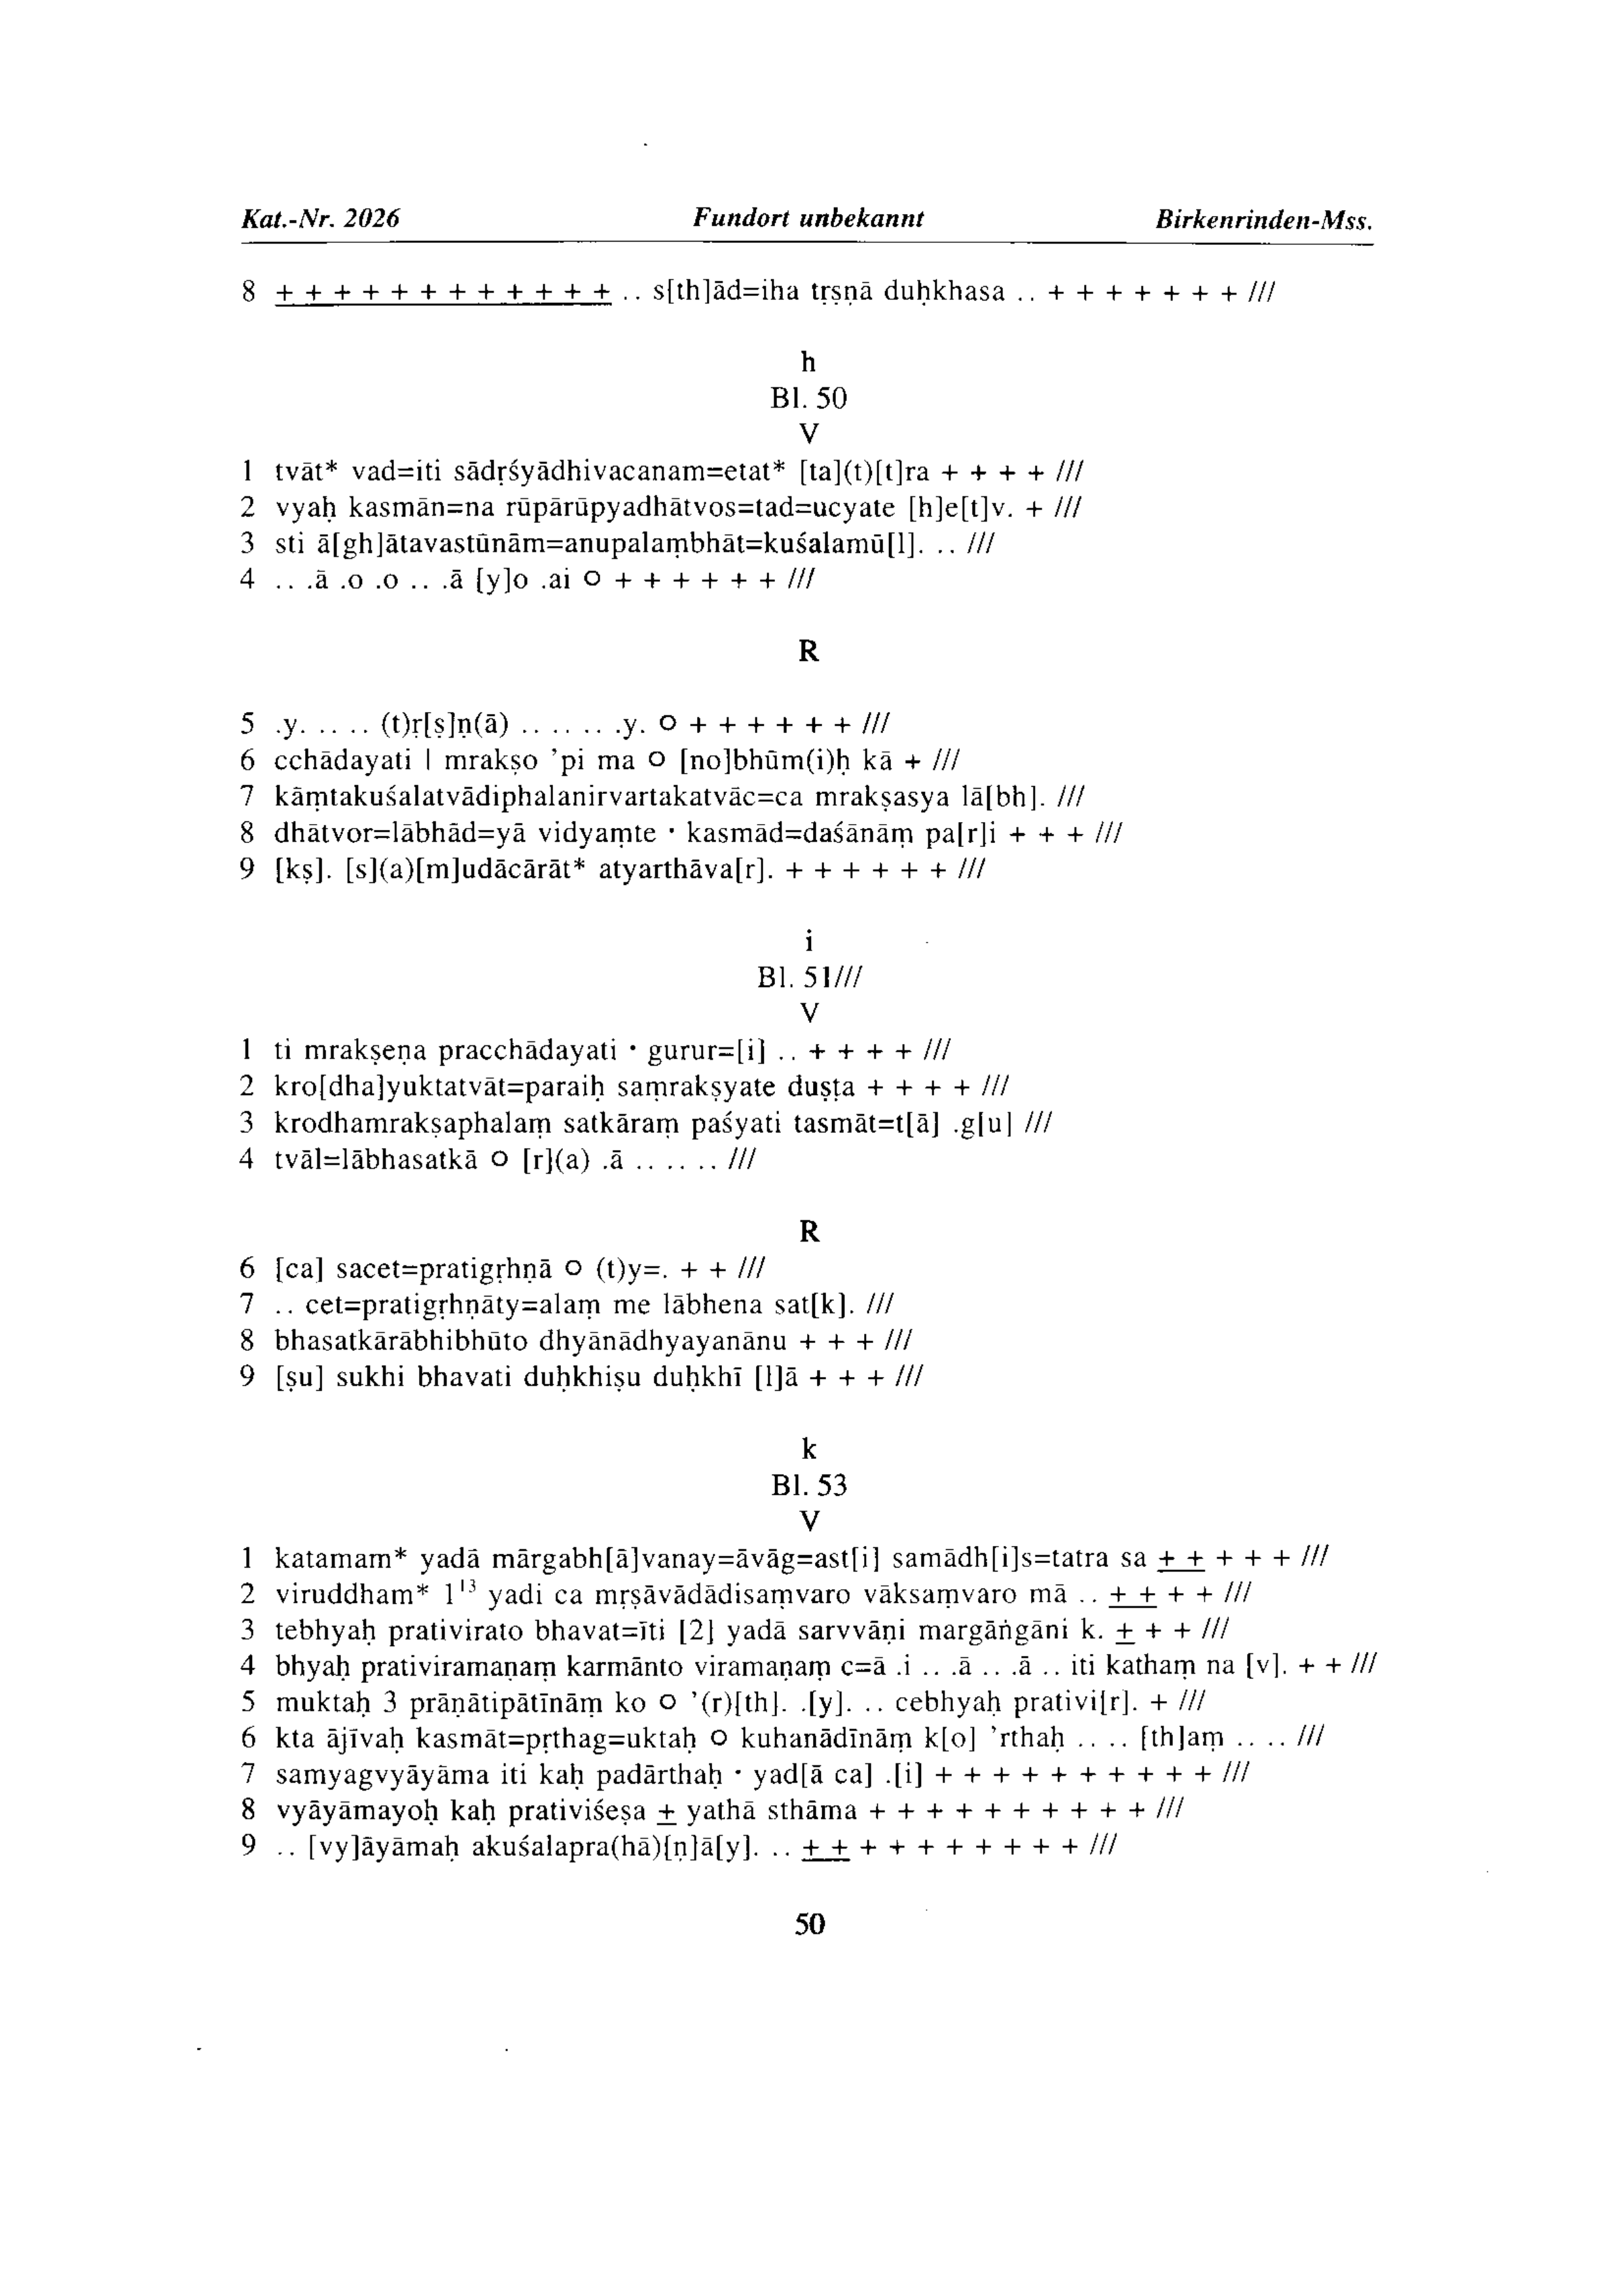 Kat.-Nr. 2026 Fundort unbekannt Birkenrinden-Mss.
8 + + + + + + + + + + + + .. s[th]ād=iha tṛṣṇā duḥkhasa .. + + + + + + + ///
h
Bl. 50
V
1 tvāt* vad=iti sādṛśyādhivacanam=etat* [ta](t)[t]ra + + + + ///
2 vyaḥ kasmān=na rūpārūpyadhātvos=tad=ucyate [h]e[t]v. + ///
3 sti ā[gh]ātavastūnām=anupalaṃbhāt=kuśalamū[l]. .. ///
4 .. .ā .o .o .. .ā [y]o .ai O + + + + + + ///
R
5 .y. .. .. (t)ṛ[ṣ]ṇ(ā) .. .. .. .y. O + + + + + + ///
6 cchādayati | mrakṣo ’pi ma O [no]bhūm(i)ḥ kā + ///
7 kāṃtakuśalatvādiphalanirvartakatvāc=ca mrakṣasya lā[bh]. ///
8 dhātvor=lābhād=yā vidyaṃte · kasmād=daśānāṃ pa[r]i + + + ///
9 [kṣ]. [s](a)[m]udācārāt* atyarthāva[r]. + + + + + + ///
i
Bl. 51///
V
1 ti mrakṣeṇa pracchādayati · gurur=[i] .. + + + + ///
2 kro[dha]yuktatvāt=paraiḥ saṃrakṣyate duṣṭa + + + + ///
3 krodhamrakṣaphalaṃ satkāraṃ paśyati tasmāt=t[ā] .g[u] ///
4 tvāl=lābhasatkā O [r](a) .ā .. .. .. ///
R
6 [ca] sacet=pratigṛhṇā O (t)y=. + + ///
7 .. cet=pratigṛhṇāty=alaṃ me lābhena sat[k]. ///
8 bhasatkārābhibhūto dhyānādhyayanānu + + + ///
9 [ṣu] sukhi bhavati duḥkhiṣu duḥkhī [l]ā + + + ///
k
Bl. 53
V
1 katamam* yadā mārgabh[ā]vanay=āvāg=ast[i] samādh[i]s=tatra sa + + + + + ///
2 viruddham* 1¹³ yadi ca mṛṣāvādādisaṃvaro vāksaṃvaro mā .. + + + + ///
3 tebhyaḥ prativirato bhavat=īti [2] yadā sarvvāṇi margāṅgāni k. + + + ///
4 bhyaḥ prativiramaṇaṃ karmānto viramaṇaṃ c=ā .i .. .ā .. .ā .. iti kathaṃ na [v]. + + ///
5 muktaḥ 3 prāṇātipātīnāṃ ko O ’(r)[th]. .[y]. .. cebhyaḥ prativi[r]. + ///
6 kta ājīvaḥ kasmāt=pṛthag=uktaḥ O kuhanādīnāṃ k[o] ’rthaḥ .. .. [th]aṃ .. .. ///
7 samyagvyāyāma iti kaḥ padārthaḥ · yad[ā ca] .[i] + + + + + + + + + + ///
8 vyāyāmayoḥ kaḥ prativiśeṣa + yathā sthāma + + + + + + + + + + ///
9 .. [vy]āyāmaḥ akuśalapra(hā)[ṇ]ā[y]. .. + + + + + + + + + + ///
50